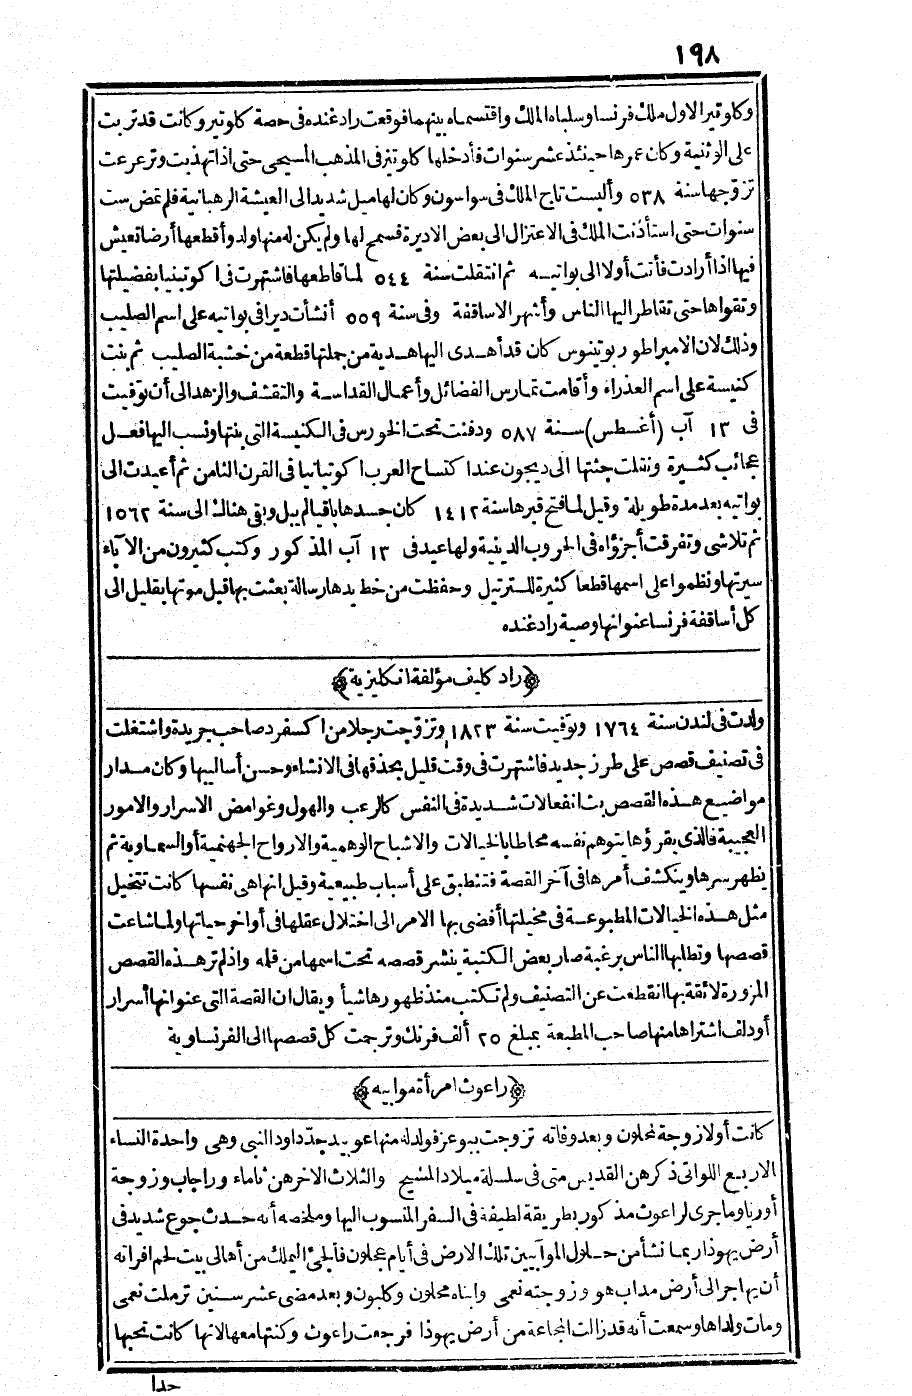 ١٩٨
وكلوتير الاول ملك فرنسا وسلباه الملك واقتسماه بينهما فوقعت رادغنده فى حصة كلوتير وكانت قد تربت
على الوثنية وكان عمرها حينئذ عشر سنوات فأدخلها كلوتير فى المذهب المسيحى حتى اذا تهذبت وترعرعت
تزوجها سنة ٥٣٨ وألبست تاج الملك فى سواسون وكان لها ميل شديد الى العيشة الرهبانية فلم تمض ست
سنوات حتى استأذنت الملك فى الاعتزال الى بعض الاديرة فسمح لها ولم يكن له منها ولد وأقطعها أرضا تعيش
فيها اذا أرادت فأتت أولا الى بواتيه ثم انتقلت سنة ٥٤٤ لمقاطعها فاشتهرت فى اكوتينيا بفضيلتها
وتقواها حتى تقاطر اليها الناس وأشهر الاساقفة وفى سنة ٥٥٩ أنشأت ديرا فى بواتيه على اسم الصليب
وذلك لان الامبراطور يوتينوس كان قد أهدى اليها هدية من جملتها قطعة من خشبة الصليب ثم بنت
كنيسة على اسم العذراء وأقامت تمارس الفضائل وأعمال القداسة والتقشف والزهد الى أن توفيت
فى ١٣ آب (أغسطس) سنة ٥٨٧ ودفنت تحت الخورس فى الكنيسة التى بنتها ونسب اليها فعل
عجائب كثيرة ونقلت جثتها الى ديجون عند اكتساح العرب اكوتيانيا فى القرن الثامن ثم أعيدت الى
بواتيه بعد مدة طويلة وقيل لما فتح قبرها سنة ١٤١٢ كان جسدها باقيا لم يبل وبقى هنالك الى سنة ١٥٦٢
ثم تلاشى وتفرقت أجزؤاه فى الحروب الدينية ولها عيد فى ١٣ آب المذكور وكتب كثيرون من الآباء
سيرتها ونظموا على اسمها قطعا كثيرة للترتيل وحفظت من خط يدها رسالة بعثت بها قبل موتها بقليل الى
كل أساقفة فرنسا عنوانها وصية رادغنده
﴿راد كليف مؤلفة انكليزية﴾
ولدت فى لندن سنة ١٧٦٤ وتوفيت سنة ١٨٢٣ وتزوجت رجلا من اكسفرد صاحب جريدة واشتغلت
فى تصنيف قصص على طرز جديد فاشتهرت فى وقت قليل بحذقها فى الانشاء وحسن أساليبها وكان مدار
مواضيع هذه القصص بث انفعالات شديدة فى النفس كالرعب والهول وغوامض الاسرار والامور
العجيبة فالذى يقرؤها يتوهم نفسه محاطا بالخيالات والاشباح الوهمية والارواح الجهنمية أو السماوية ثم
يظهر سرها وينكشف أمرها فى آخر القصة فتنطبق على أسباب طبيعية وقيل انها هى نفسها كانت تتخيل
مثل هذه الخيالات المطبوعة فى مخيلتها أفضى بها الامر الى اختلال عقلها فى أواخر حياتها ولما شاعت
قصصها وتطلبها الناس برغبة صار بعض الكتبة ينشر قصصه تحت اسمها من قلمه واذ لم تر هذه القصص
المزورة لائقة بها انقطعت عن التصنيف ولم تكتب منذ ظهورها شيأ ويقال ان القصة التى عنوانها أسرار
أودلف اشتراها منها صاحب المطبعة بمبلغ ٢٥ ألف فرنك وترجمت كل قصصها الى الفرنساوية
﴿راعوث امرأة موابيه﴾
كانت أولا زوجة لمحلون وبعد وفاته تزوجت ببوعز فولد له منها عوبيد جد داود النبى وهى واحدة النساء
الاربع اللواتى ذكرهن القديس متى فى سلسلة ميلاد المسيح والثلاث الاخر هن ثاماء وراجاب وزوجة
أوريا وماجرى لراعوث مذكور بطريقة لطيفة فى السفر المنسوب اليها وملخصه أنه حدث جوع شديد فى
أرض يهوذا ربما نشأ من حلول الموآبيين تلك الارض فى أيام عجلون فألجئ اليملك من أهالى بيت لحم افراتة
أن يهاجر الى أرض مداب هو وزوجته نعمى وابناه محلون وكليون وبعد مضى عشر سنين ترملت نعمى
ومات ولداها وسمعت أنه قد زالت المجاعة من أرض يهوذا فرجعت راعوث وكنتها معها لانها كانت تحبها
حدا